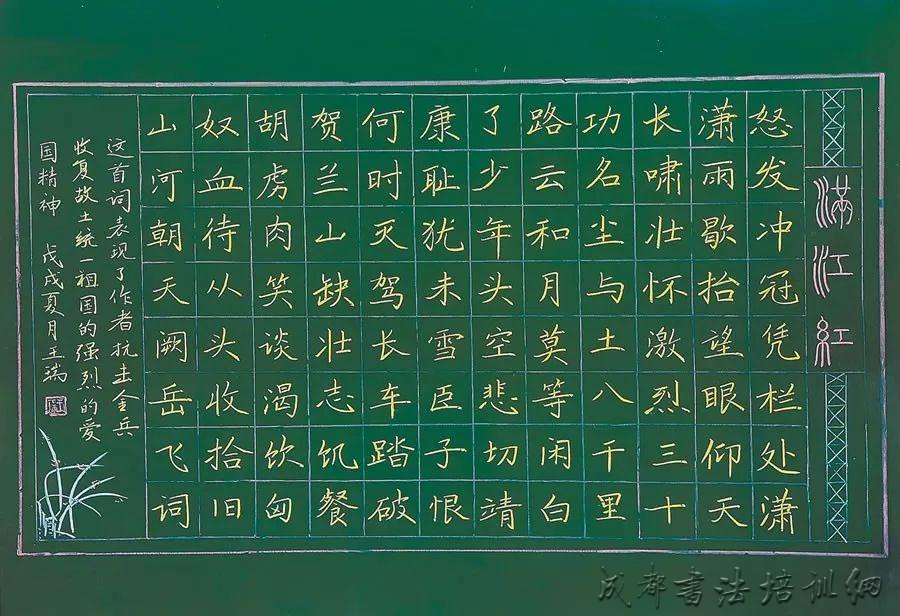 滿江紅
怒发冲冠凭栏处潇
潇雨歇抬望眼仰天
长啸壮怀激烈三十
功名尘与土八千里
路云和月莫等闲白
了少年头空悲切靖
康耻犹未雪臣子恨
何时灭驾长车踏破
贺兰山缺壮志饥餐
胡虏肉笑谈渴饮匈
奴血待从头收拾旧
山河朝天阙岳飞词
这首词表现了作者抗击金兵
收复故土统一祖国的强烈的爱
国精神 戊戌夏月王瑞
成都書法培训網